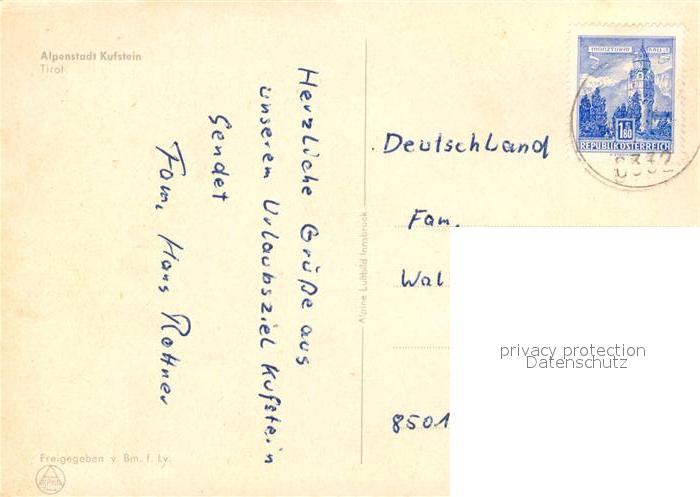 Alpenstadt Kufstein
Tirol
Herzliche Grüße aus
unserem Urlaubsziel Kufstein
Sendet
Fam. Hans Rottner
Freigegeben v. Bm. f. Lv.
Alpine Luftbild Innsbruck
MÜNZTURM HALL
1.80
REPUBLIK ÖSTERREICH
Deutschland
Fam.
Wal
8501
privacy protection
Datenschutz